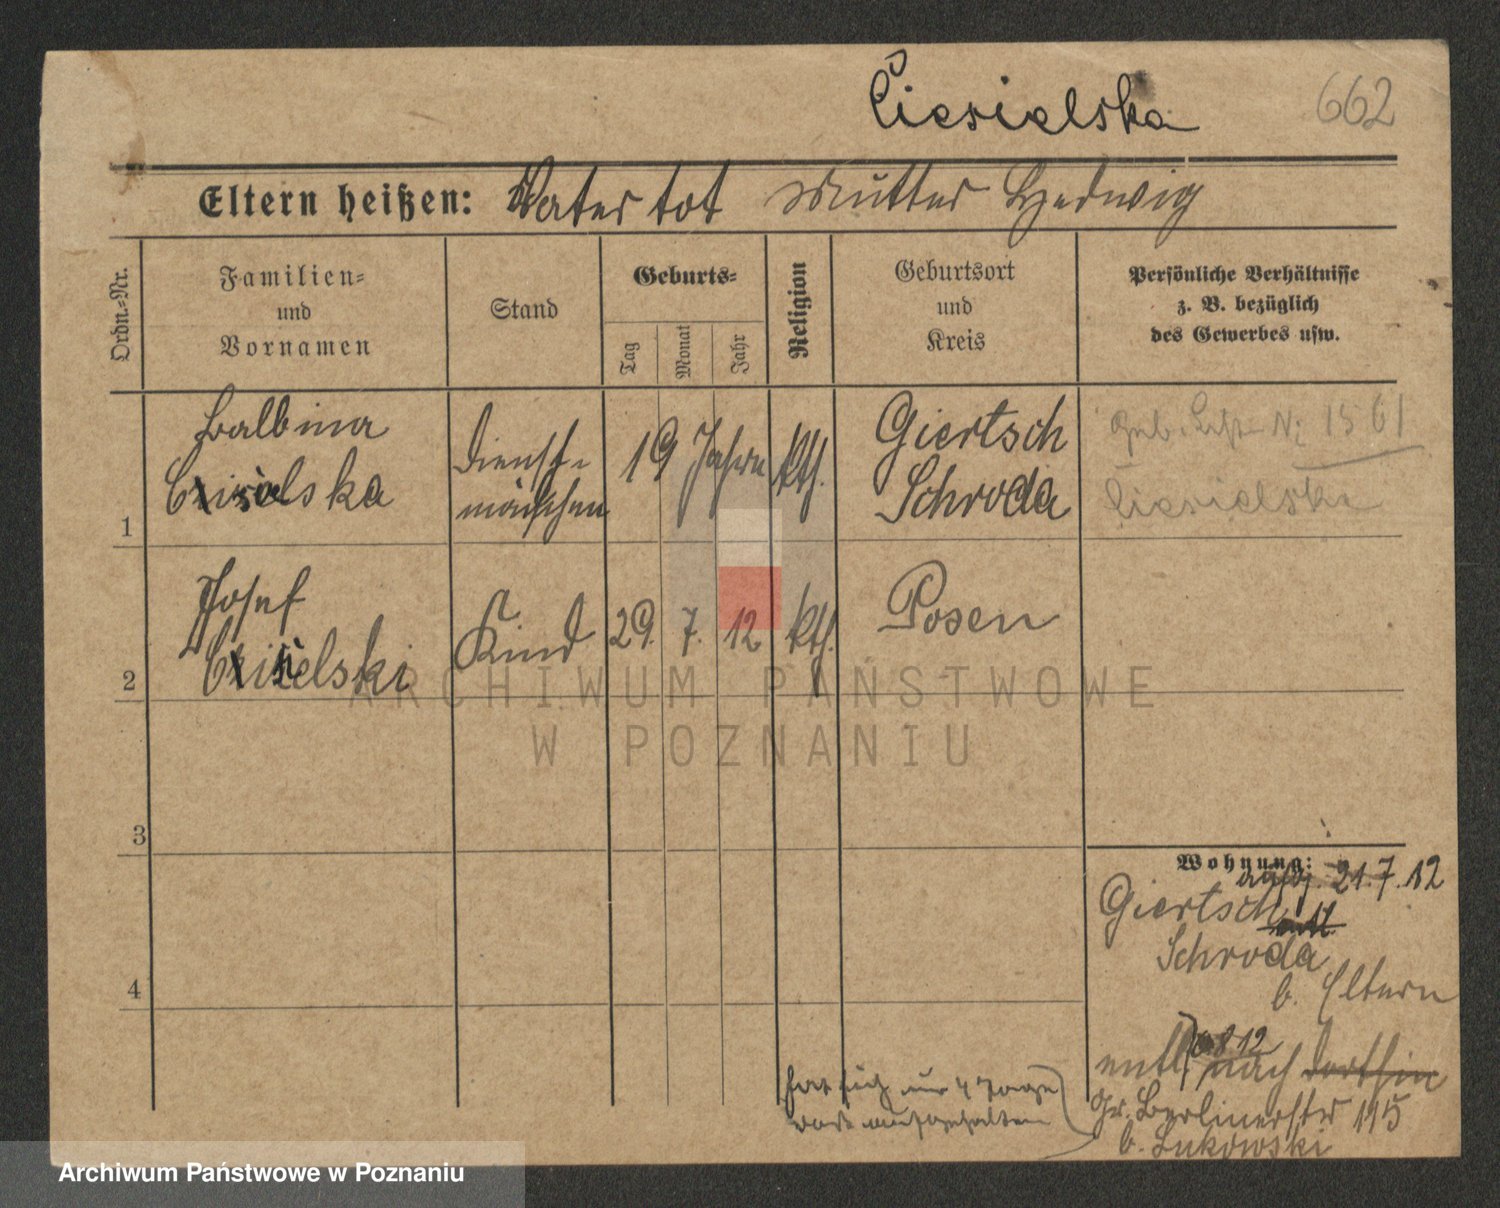 Ciesielska
662
Eltern heißen: Vater tot Mutter Hedwig
Ordn.-Nr.
Familien-
und
Vornamen
Stand
Geburts-
Tag
Monat
Jahr
Religion
Geburtsort
und
Kreis
Persönliche Verhältnisse
z. B. bezüglich
des Gewerbes usw.
1
Balbina
Ciesielska
Dienst-
mädchen
19 Jahre
kth.
Giertsch
Schroda
Geb. Nr. 1561
Ciesielska
2
Josef
Ciesielski
Kind
29. 7. 12
kth.
Posen
3
4
Wohnung:
aufg. 21.7.12
Giertsch
Schroda
b. Eltern
entl. 6.8.12 nach dorthin
Gr. Berlinerstr 115
b. Lukowski
hat sich nur 4 Tage
dort aufgehalten
ARCHIWUM PAŃSTWOWE
W POZNANIU
Archiwum Państwowe w Poznaniu